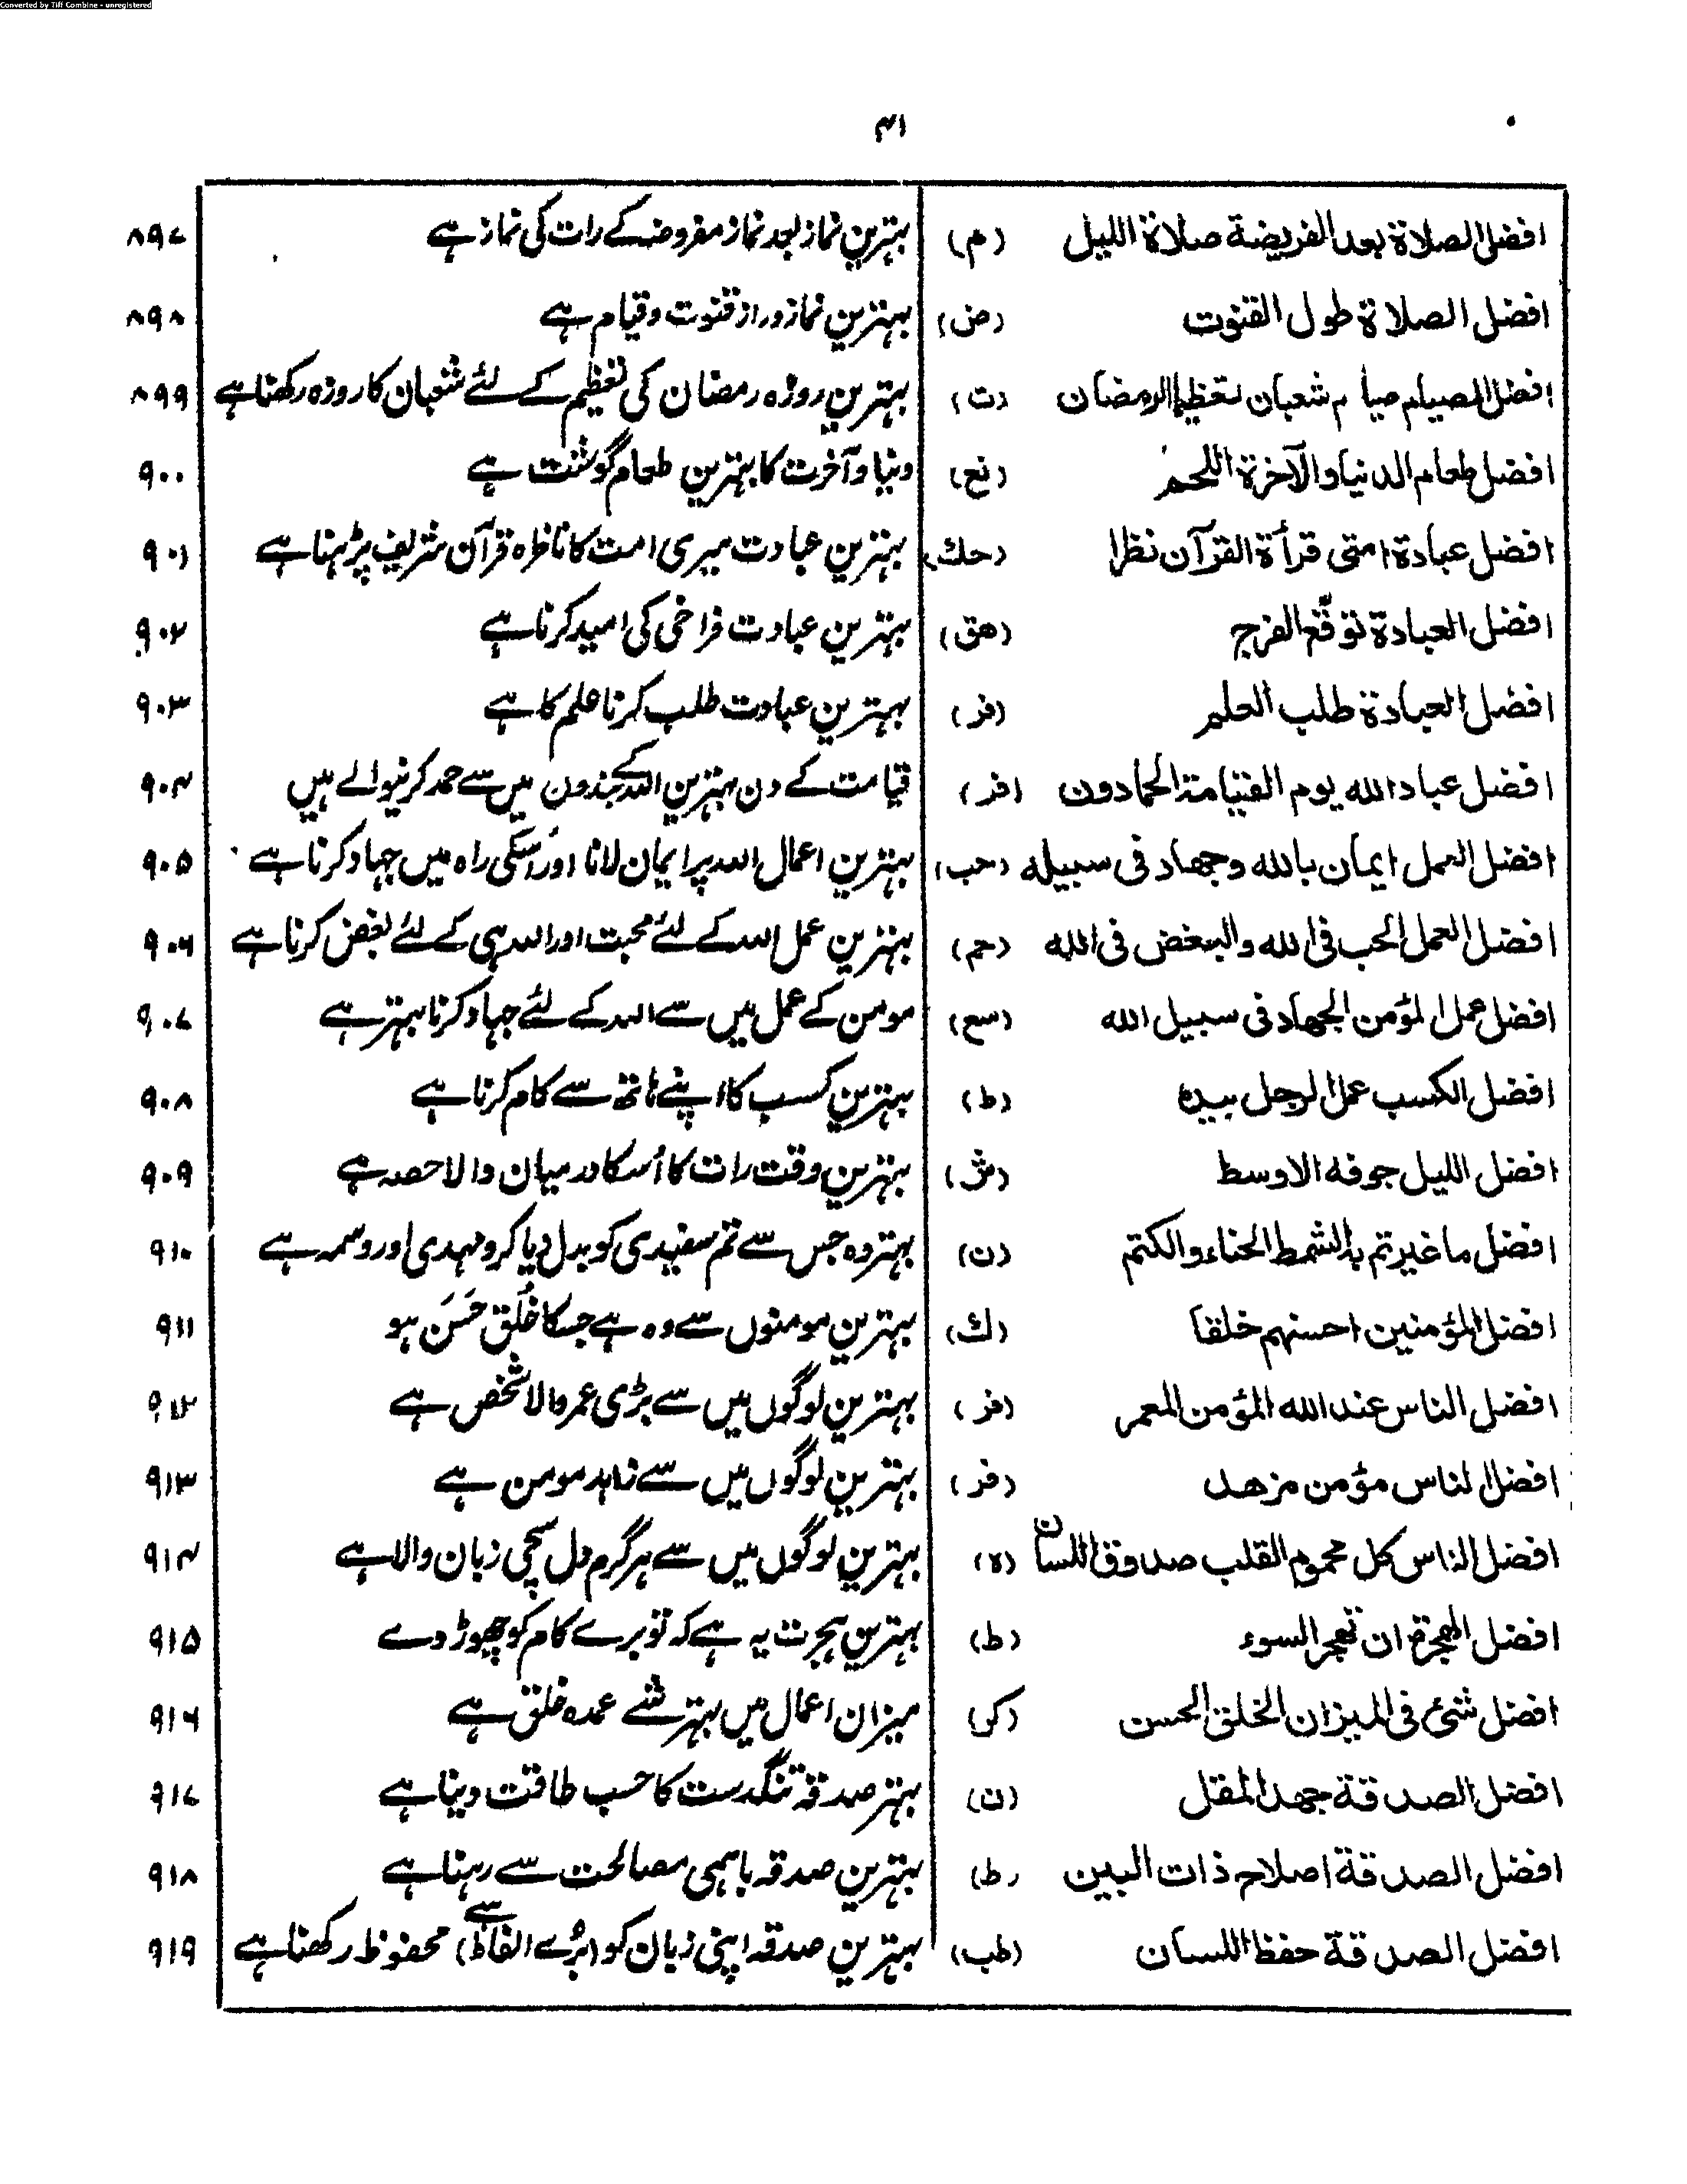 Converted by Tiff Combine - unregistered
۴۱
افضل الصلاة بعد الفريضة صلاة الليل (م) بہترین نماز بعد نماز مفروضہ کے رات کی نماز ہے ۸۹۷
افضل الصلاة طول القنوت (ض) بہترین نماز دراز قنوت و قیام ہے ۸۹۸
افضل الصيام صيام شعبان تعظيما لرمضان (ت) بہترین روزہ رمضان کی تعظیم کے لئے شعبان کا روزہ رکھنا ہے ۸۹۹
افضل طعام الدنيا والآخرة اللحم (نع) دنیا و آخرت کا بہترین طعام گوشت ہے ۹۰۰
افضل عبادة امتى قرأة القرآن نظرا (حك) بہترین عبادت میری امت کا ناظرہ قرآن شریف پڑہنا ہے ۹۰۱
افضل العبادة توقّع الفرج (هق) بہترین عبادت فراخی کی امید کرنا ہے ۹۰۲
افضل العبادة طلب العلم (فر) بہترین عبادت طلب کرنا علم کا ہے ۹۰۳
افضل عباد الله يوم القيامة الحمادون (فر) قیامت کے دن بہترین اللہ کے بندون میں سے حمد کرنیوالے ہیں ۹۰۴
افضل العمل ايمان بالله وجهاد فى سبيله (حب) بہترین اعمال اللہ پر ایمان لانا اور اُسکی راہ میں جہاد کرنا ہے ۹۰۵
افضل العمل الحب فى الله والبغض فى الله (حم) بہترین عمل اللہ کے لئے محبت اور اللہ ہی کے لئے بغض کرنا ہے ۹۰۶
افضل عمل المؤمن الجهاد فى سبيل الله (سع) مومن کے عمل میں سے اللہ کے لئے جہاد کرنا بہتر ہے ۹۰۷
افضل الكسب عمل الرجل بيده (ط) بہترین کسب کا اپنے ہاتھ سے کام کرنا ہے ۹۰۸
افضل الليل جوفه الاوسط (ش) بہترین وقت رات کا اُسکا درمیان والا حصہ ہے ۹۰۹
افضل ما غيرتم به الشمط الحناء والكتم (ن) بہتر وہ جس سے تم سفیدی کو بدل دیا کرو مہدی اور وسمہ ہے ۹۱۰
افضل المؤمنين احسنهم خلقا (ك) بہترین مومنوں سے وہ ہے جسکا خُلق حَسَن ہو ۹۱۱
افضل الناس عند الله المؤمن المعمر (فر) بہترین لوگوں میں سے بڑی عمر والا شخص ہے ۹۱۲
افضل الناس مؤمن مزهد (فر) بہترین لوگوں میں سے زاہد مومن ہے ۹۱۳
افضل الناس كل محموم القلب صدوق اللسان (ه) بہترین لوگوں میں سے ہر گرم دل سچی زبان والا ہے ۹۱۴
افضل الهجرة ان تهجر السوء (ط) بہترین ہجرت یہ ہے کہ تو برے کام کو چھوڑ دے ۹۱۵
افضل شئ فى الميزان الخلق الحسن (كر) میزان اعمال میں بہتر شے عمدہ خلق ہے ۹۱۶
افضل الصدقة جهد المقل (ن) بہتر صدقہ تنگدست کا حسب طاقت دینا ہے ۹۱۷
افضل الصدقة اصلاح ذات البين (ط) بہترین صدقہ باہمی مصالحت سے رہنا ہے ۹۱۸
افضل الصدقة حفظ اللسان (طب) بہترین صدقہ اپنی زبان کو (بُرے الفاظ) سے محفوظ رکھنا ہے ۹۱۹